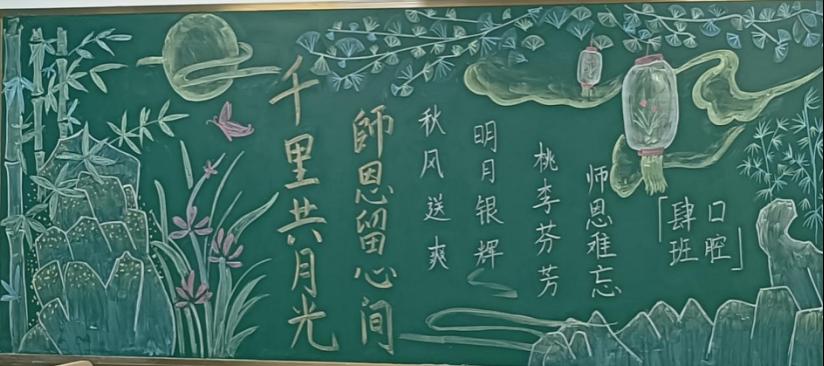 千里共月光
師恩留心間
秋风送爽
明月银辉
桃李芬芳
师恩难忘
「肆班
口腔」